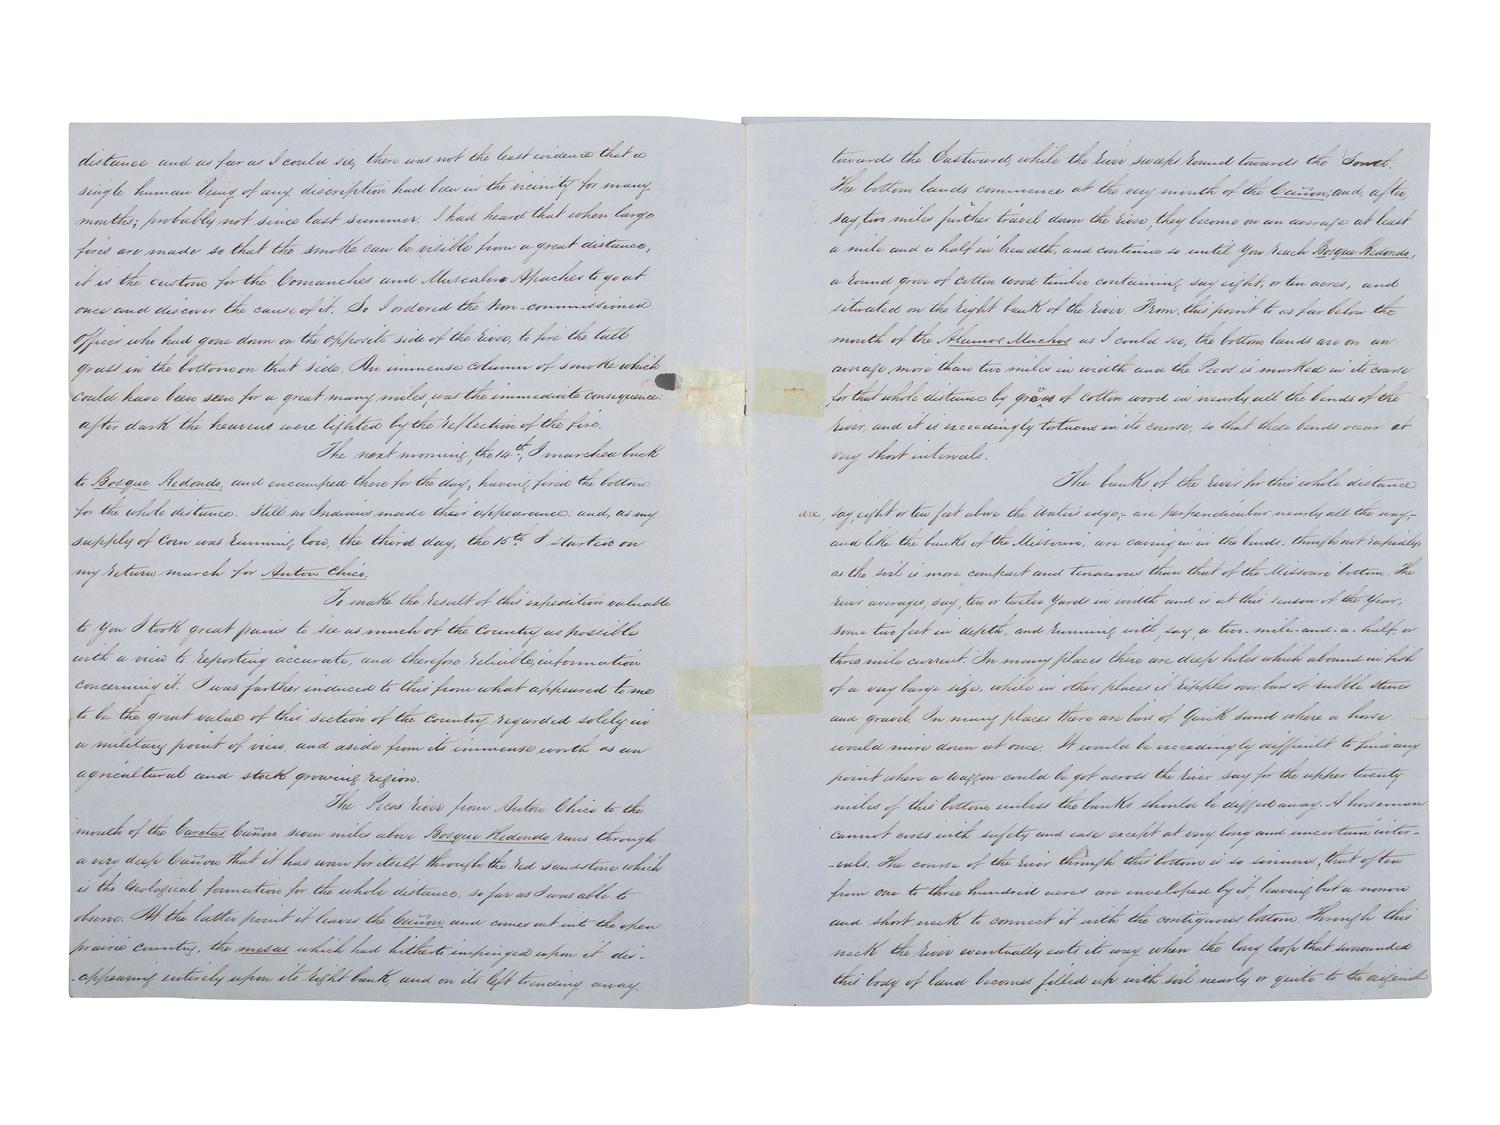 distance and as far as I could see, there was not the least evidence that a
single human being of any discription had been in the vicinity for many
months; probably not since last summer. I had heard that when large
fires are made so that the smoke can be visible from a great distance,
it is the custom for the Comanches and Muscalero Apaches to go at
once and discover the cause of it. So I ordered the Non-commissioned
Officer who had gone down on the opposite side of the River, to fire the tall
grass in the bottom on that side. An immense column of smoke which
could have been seen for a great many miles, was the immediate consequence:
after dark the heavens were lighted by the reflection of the fire.
The next morning, the 14th, I marched back
to Bosque Redondo, and encamped there for the day, having fired the bottom
for the whole distance. Still no Indians made their appearance; and, as my
supply of corn was running low, the third day, the 15th I started on
my return march for Anton Chico.
To make the result of this expedition valuable
to You I took great pains to see as much of the Country as possible
with a view to reporting accurate, and therefore reliable, information
concerning it. I was farther induced to this from what appeared to me
to be the great value of this section of the country regarded solely in
a military point of view, and aside from its immense worth as an
agricultural and stock growing region.
The Pecos River from Anton Chico to the
mouth of the Cañon seven miles above Bosque Redondo runs through
a very deep Cañon that it has worn for itself through the red sandstone which
is the Geological formation for the whole distance, so far as I was able to
observe. At the latter point it leaves the Cañon, and comes out into the open
prairie country, the mesas which had hitherto impinged upon it dis-
-appearing entirely upon its right bank, and on its left trending away
towards the Eastward, while the River sweeps round towards the South.
The bottom lands commence at the very mouth of the Cañon; and, after,
say, two miles further travel down the River, they become on an average at least
a mile and a half in breadth, and continue so until You reach Bosque Redondo,
a round grove of cotton wood timber containing say eight, or ten acres, and
situated on the right bank of the River. From this point to as far below the
mouth of the Alamos Muchos as I could see, the bottom lands are on an
average more than two miles in width and the Pecos is marked in its course
for that whole distance by groves of cotton wood in nearly all the bends of the
River, and it is exceedingly tortuous in its course, so that these bends occur at
very short intervals.
The banks of the River for this whole distance
are, say, eight or ten feet above the Water's edge,- are perpendicular nearly all the way,-
and like the banks of the Missouri, are caving in in the bends, though not rapidly,
as the soil is more compact and tenacious than that of the Missouri bottom. The
River averages, say, ten or twelve Yards in width and is at this season of the Year,
some two feet in depth, and running with, say a two-mile-and-a-half, or
three mile current. In many places there are deep holes which abound in fish
of a very large size, while in other places it ripples over bars of rubble stones
and gravel. In many places there are bars of Quick sand where a horse
would mire down at once. It would be exceedingly difficult to find any
point where a waggon could be got across the River say for the upper twenty
miles of this bottom unless the banks should be digged away. A horseman
cannot cross with safety and ease except at very long and uncertain inter-
-vals. The course of the River through this bottom is so sinuous, that often
from one to three hundred acres are enveloped by it, leaving but a narrow
and short neck to connect it with the contiguous bottom. Through this
neck the River eventually eats its way when the long loop that surrounded
this body of land becomes filled up with soil nearly or quite to the original